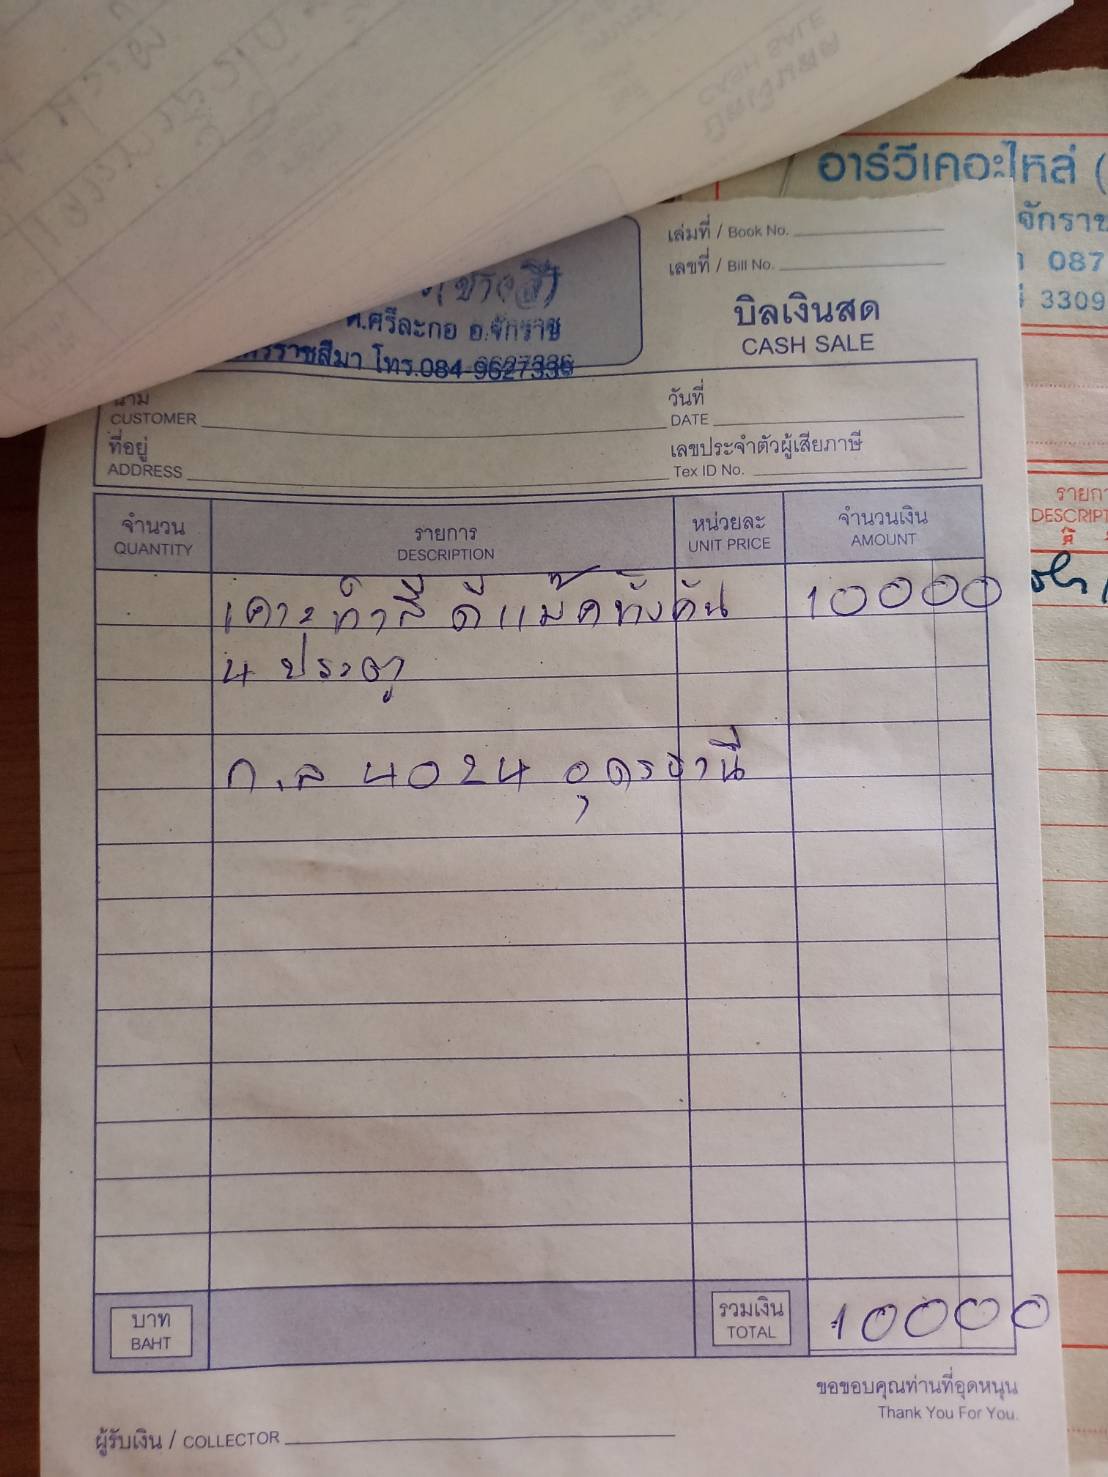 อาร์วีเคอะไหล่ (
087
3309
เล่มที่ / Book No.
เลขที่ / Bill No.
บิลเงินสด
CASH SALE
ต.ศรีละกอ อ.จักราช
โทร.084-9627336
นาม
CUSTOMER
วันที่
DATE
ที่อยู่
ADDRESS
เลขประจำตัวผู้เสียภาษี
Tex ID No.
จำนวน
QUANTITY
รายการ
DESCRIPTION
หน่วยละ
UNIT PRICE
จำนวนเงิน
AMOUNT
เคาะทำสี ดีแม๊คทั้งคัน 10000
4 ประตู
ก.ล 4024 อุดรธานี
บาท
BAHT
รวมเงิน
TOTAL
10000
ขอขอบคุณท่านที่อุดหนุน
Thank You For You.
ผู้รับเงิน / COLLECTOR